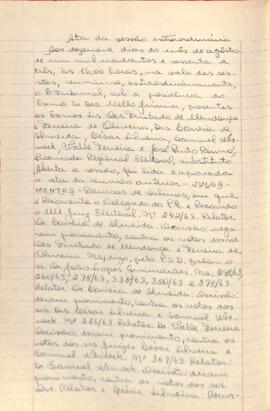 Ata da sessão extraordinária
Aos dezenove dias do mês de agôsto
de um mil novecentos e sessenta e
três, às 16,00 horas, na sala das ses-
sões, reuniu-se, extraordinariamente,
o Tribunal, sob a presidência do
Exmo Sr. Des. Mello Júnior, presentes
os Exmos Srs. Des. Furtado de Mendonça
e Ferreira de Oliveira, Drs. Correia de
Almeida, César Silveira, Samuel Wer-
neck, Valle Ferreira e José
Procurador Regional Eleitoral, substituto
Aberta a sessão, foi lida e aprovada
a ata da reunião anterior. - JULGA-
MENTOS - Recurso de Salinas, em que
é Recorrente o Delegado do P.R. e Recorrido
o MM. Juiz Eleitoral. Nº 242/63. Relator:
Dr. Correia de Almeida. Decisão: nega-
ram provimento, contra os votos dos
Des. Furtado de Mendonça e Ferreira de
Oliveira. pelo P.S.D., falou o
Dr. João Lopes Guimarães. Nos.
260/63, 278/63, 338/63, 350/63 e 378/63.
Relator: Dr. Correia de Almeida. Decisão:
deram provimento, contra os votos dos
Drs. César Silveira e Samuel Wer-
neck. Nº 286/63. Relator: Dr. Valle Ferreira
Decisão: deram provimento, contra os
votos dos juizes César Silveira e
Samuel Werneck. Nº 367/63. Relator:
Dr. Samuel Werneck. Decisão: deram
provimento, contra os votos dos
Drs. Relator e César Silveira. Recur-